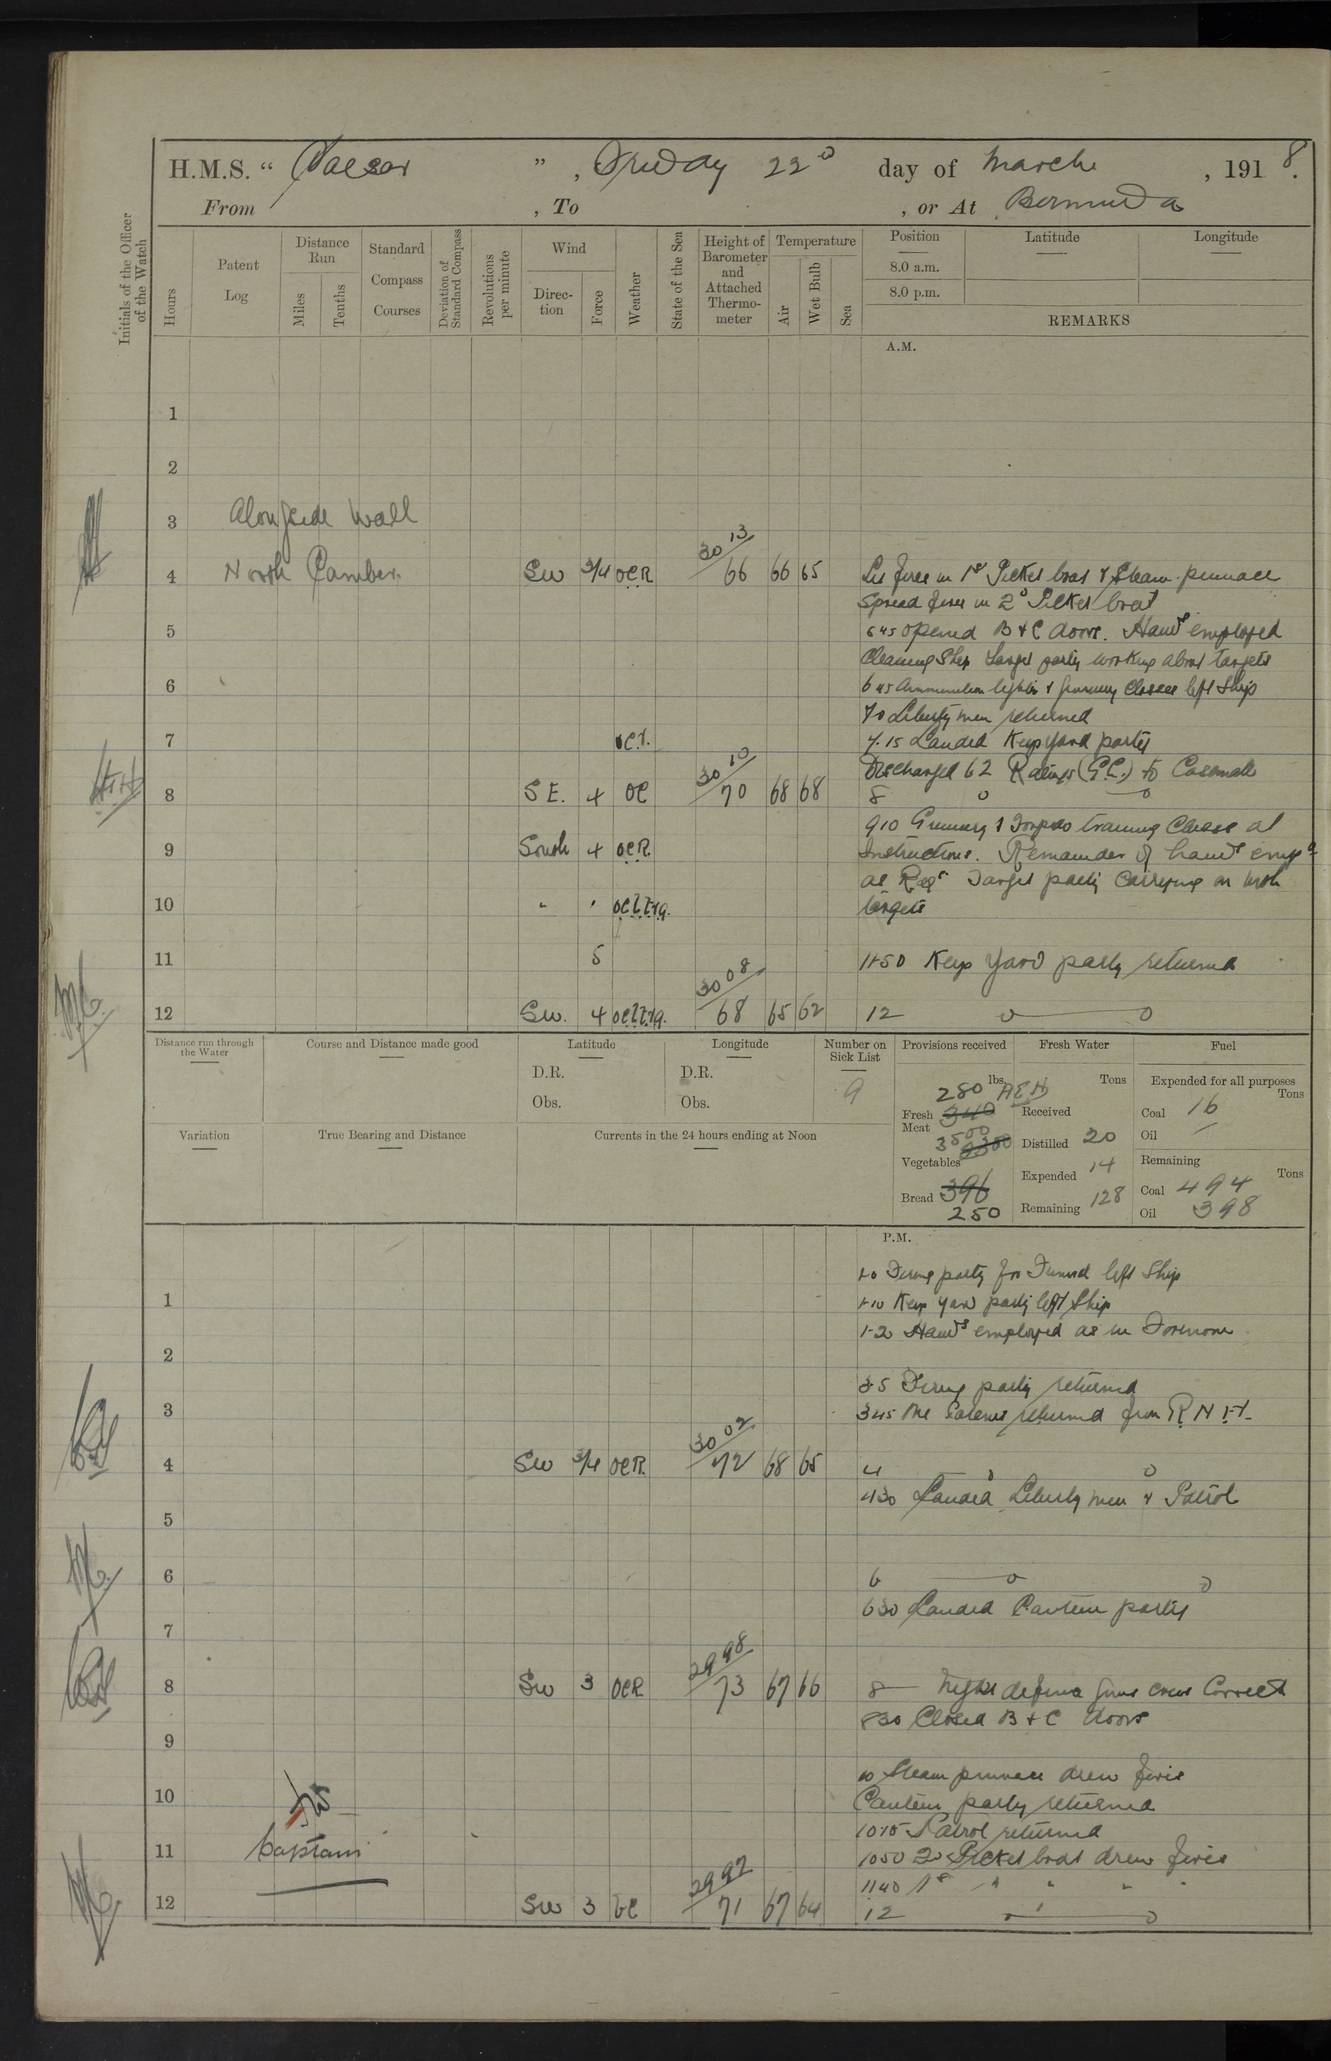 H.M.S. “ Caesar ”, Friday 22d day of March, 1918.
From , To , or At Bermuda
Initials of the Officer of the Watch
Hours
Patent Log
Distance Run
Miles
Tenths
Standard Compass Courses
Deviation of Standard Compass
Revolutions per minute
Wind
Direction
Force
Weather
State of the Sea
Height of Barometer and Attached Thermometer
Temperature
Air
Wet Bulb
Sea
Position
8.0 a.m.
8.0 p.m.
Latitude
Longitude
REMARKS
A.M.
1
2
3 Alongside Wall
4 North Camber. SW 3/4 OCR 30 13 66 66 65 Lit fires in 1st Picket boat & Steam pinnace
Spread fires in 2d Picket boat
5 6 45 opened B & C doors. Hands employed
Cleaning Ship Target party working about targets
6 6 45 Ammunition lighter & gunnery Classes left Ship
7 0 Liberty men returned
7 7.15 Landed Keep yard party
Discharged 62 Ratings (G.C.) to Casemate
8 SE. 4 OC 30 10 70 68 68 8
9 10 Gunnery & Torpedo training Classes at
9 South 4 OCR Instructions. Remainder of hands empd
as Reqr Target party Carrying on with
10 " " targets
11 5 11-50 Keep Yard party returned
12 SW. 4 30 08 68 65 62 12
Distance run through the Water
Course and Distance made good
Latitude
D.R.
Obs.
Longitude
D.R.
Obs.
Number on Sick List
9
Provisions received
lbs.
280 AEH
Fresh Meat 340
3500
Vegetables
Bread 396
250
Fresh Water
Tons
Received
Distilled 20
Expended 14
Remaining 128
Fuel
Expended for all purposes
Tons
Coal 16
Oil —
Remaining
Tons
Coal 494
Oil 398
Variation
True Bearing and Distance
Currents in the 24 hours ending at Noon
P.M.
1-0 Firing party for Funeral left Ship
1 1-10 Keep yard party left Ship
1-20 Hands employed as in Forenoon
2
3-5 Firing party returned
3 3 45 One Patient returned from R N H.
4 SW 3/4 OCR 30 02 72 68 65 4
4 30 Landed Liberty men & Patrol
5
6 6
6 30 Landed Canteen party
7
8 SW 3 OCR 29 98 73 67 66 8 — Night defence Guns crews Correct
8 30 Closed B & C doors
9
10 Steam pinnace drew fires
10 Canteen party returned
10 15 Patrol returned
11 Captain 10 50 2d Picket boat drew fires
11 40 1st " " " "
12 SW 3 bC 29 97 71 67 64 12